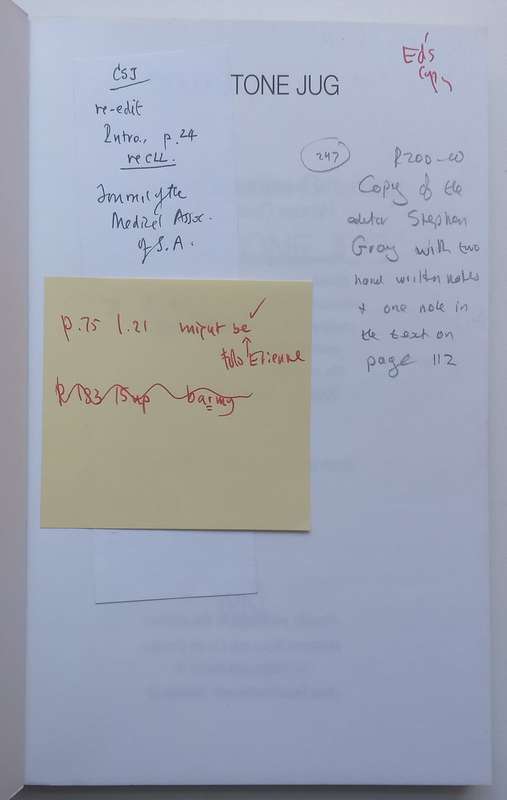 TONE JUG
Ed's
Copy
CSJ
re-edit
Intro., p.24
re CLL.
Journal of the
Medical Assoc.
of S.A.
247
R200-00
Copy of the
editor Stephen
Gray with two
hand written notes
+ one note in
the text on
page 112
p.75 l.21 might be
to Etienne
p 183 15up barmy